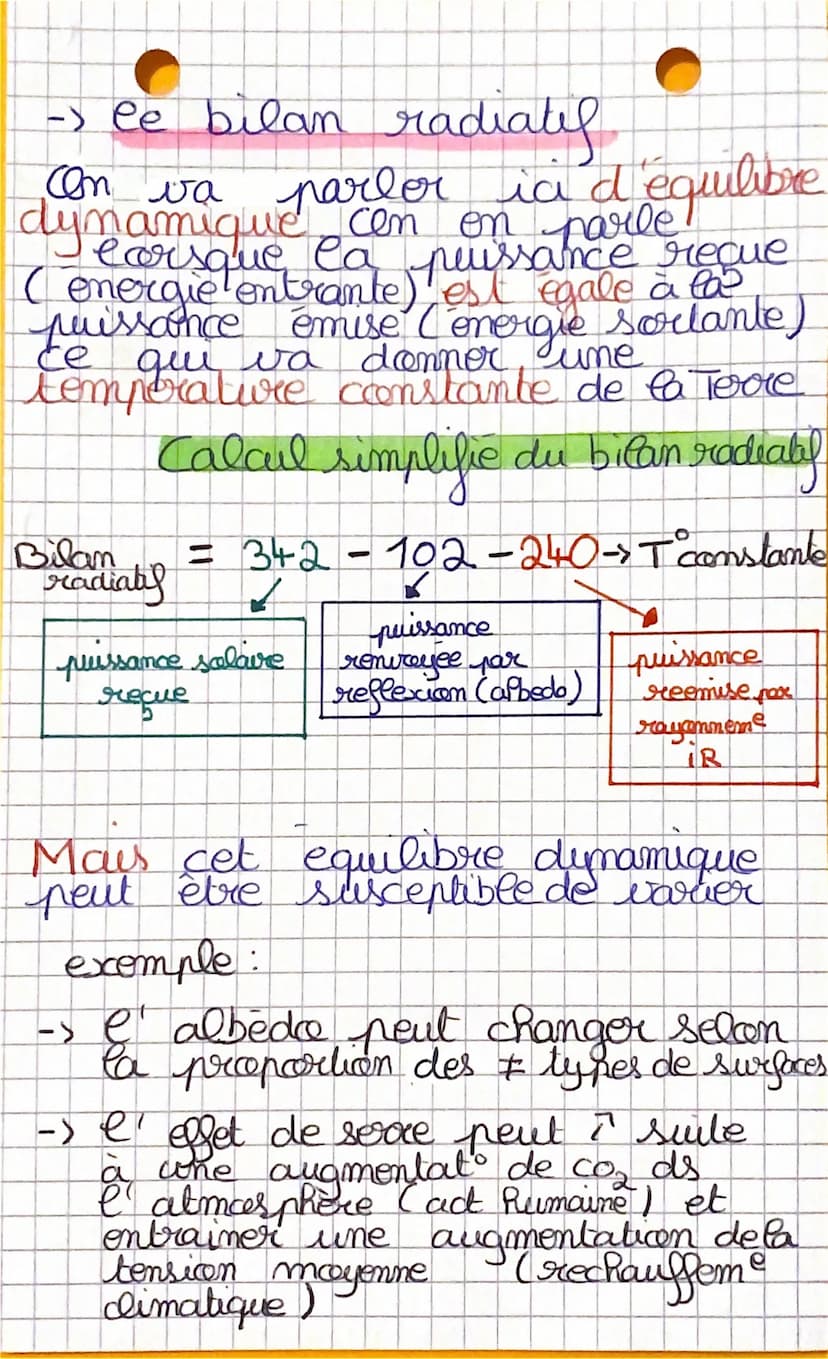 -> le bilan radiatif
On va parler ici d'équilibre
dynamique on en parle
lorsque la puissance reçue
(énergie entrante) est égale à la
puissance émise (énergie sortante)
ce qui va donner une
température constante de la Terre
Calcul simplifié du bilan radiatif
Bilan radiatif = 342 - 102 - 240 -> T° constante
puissance solaire
reçue
puissance
renvoyée par
reflexion (albedo)
puissance
reemise par
rayonnemᵉ
iR
Mais cet équilibre dynamique
peut être susceptible de varier
exemple :
-> l' albédo peut changer selon
la proportion des ≠ types de surfaces
-> l' effet de serre peut ↗ suite
à une augmentat° de co₂ ds
l' atmosphère (act humaine) et
entrainer une augmentation de la
tension moyenne (rechauffemᵉ
climatique)